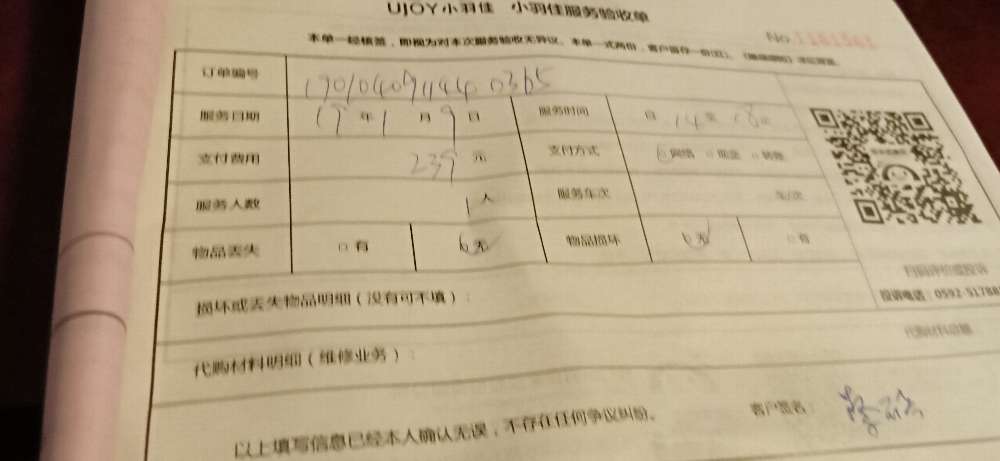 UJOY小羽佳 小羽佳服务验收单
本单一经核签，即视为对本次服务验收无异议。本单一式两份，客户留存一份(红)。
No 1181561
订单编号 190104091444 0365
服务日期 19 年 1 月 9 日 服务时间 自 14 至 18
支付费用 239 元 支付方式 网络 现金 转账
服务人数 1 人 服务车次 车/次
物品丢失 □有 无 物品损坏 无 □有
扫码评价或投诉
投诉电话：0592-51788
损坏或丢失物品明细（没有可不填）：
代购材料明细（维修业务）：
代购材料总额
以上填写信息已经本人确认无误，不存在任何争议纠纷。 客户签名：